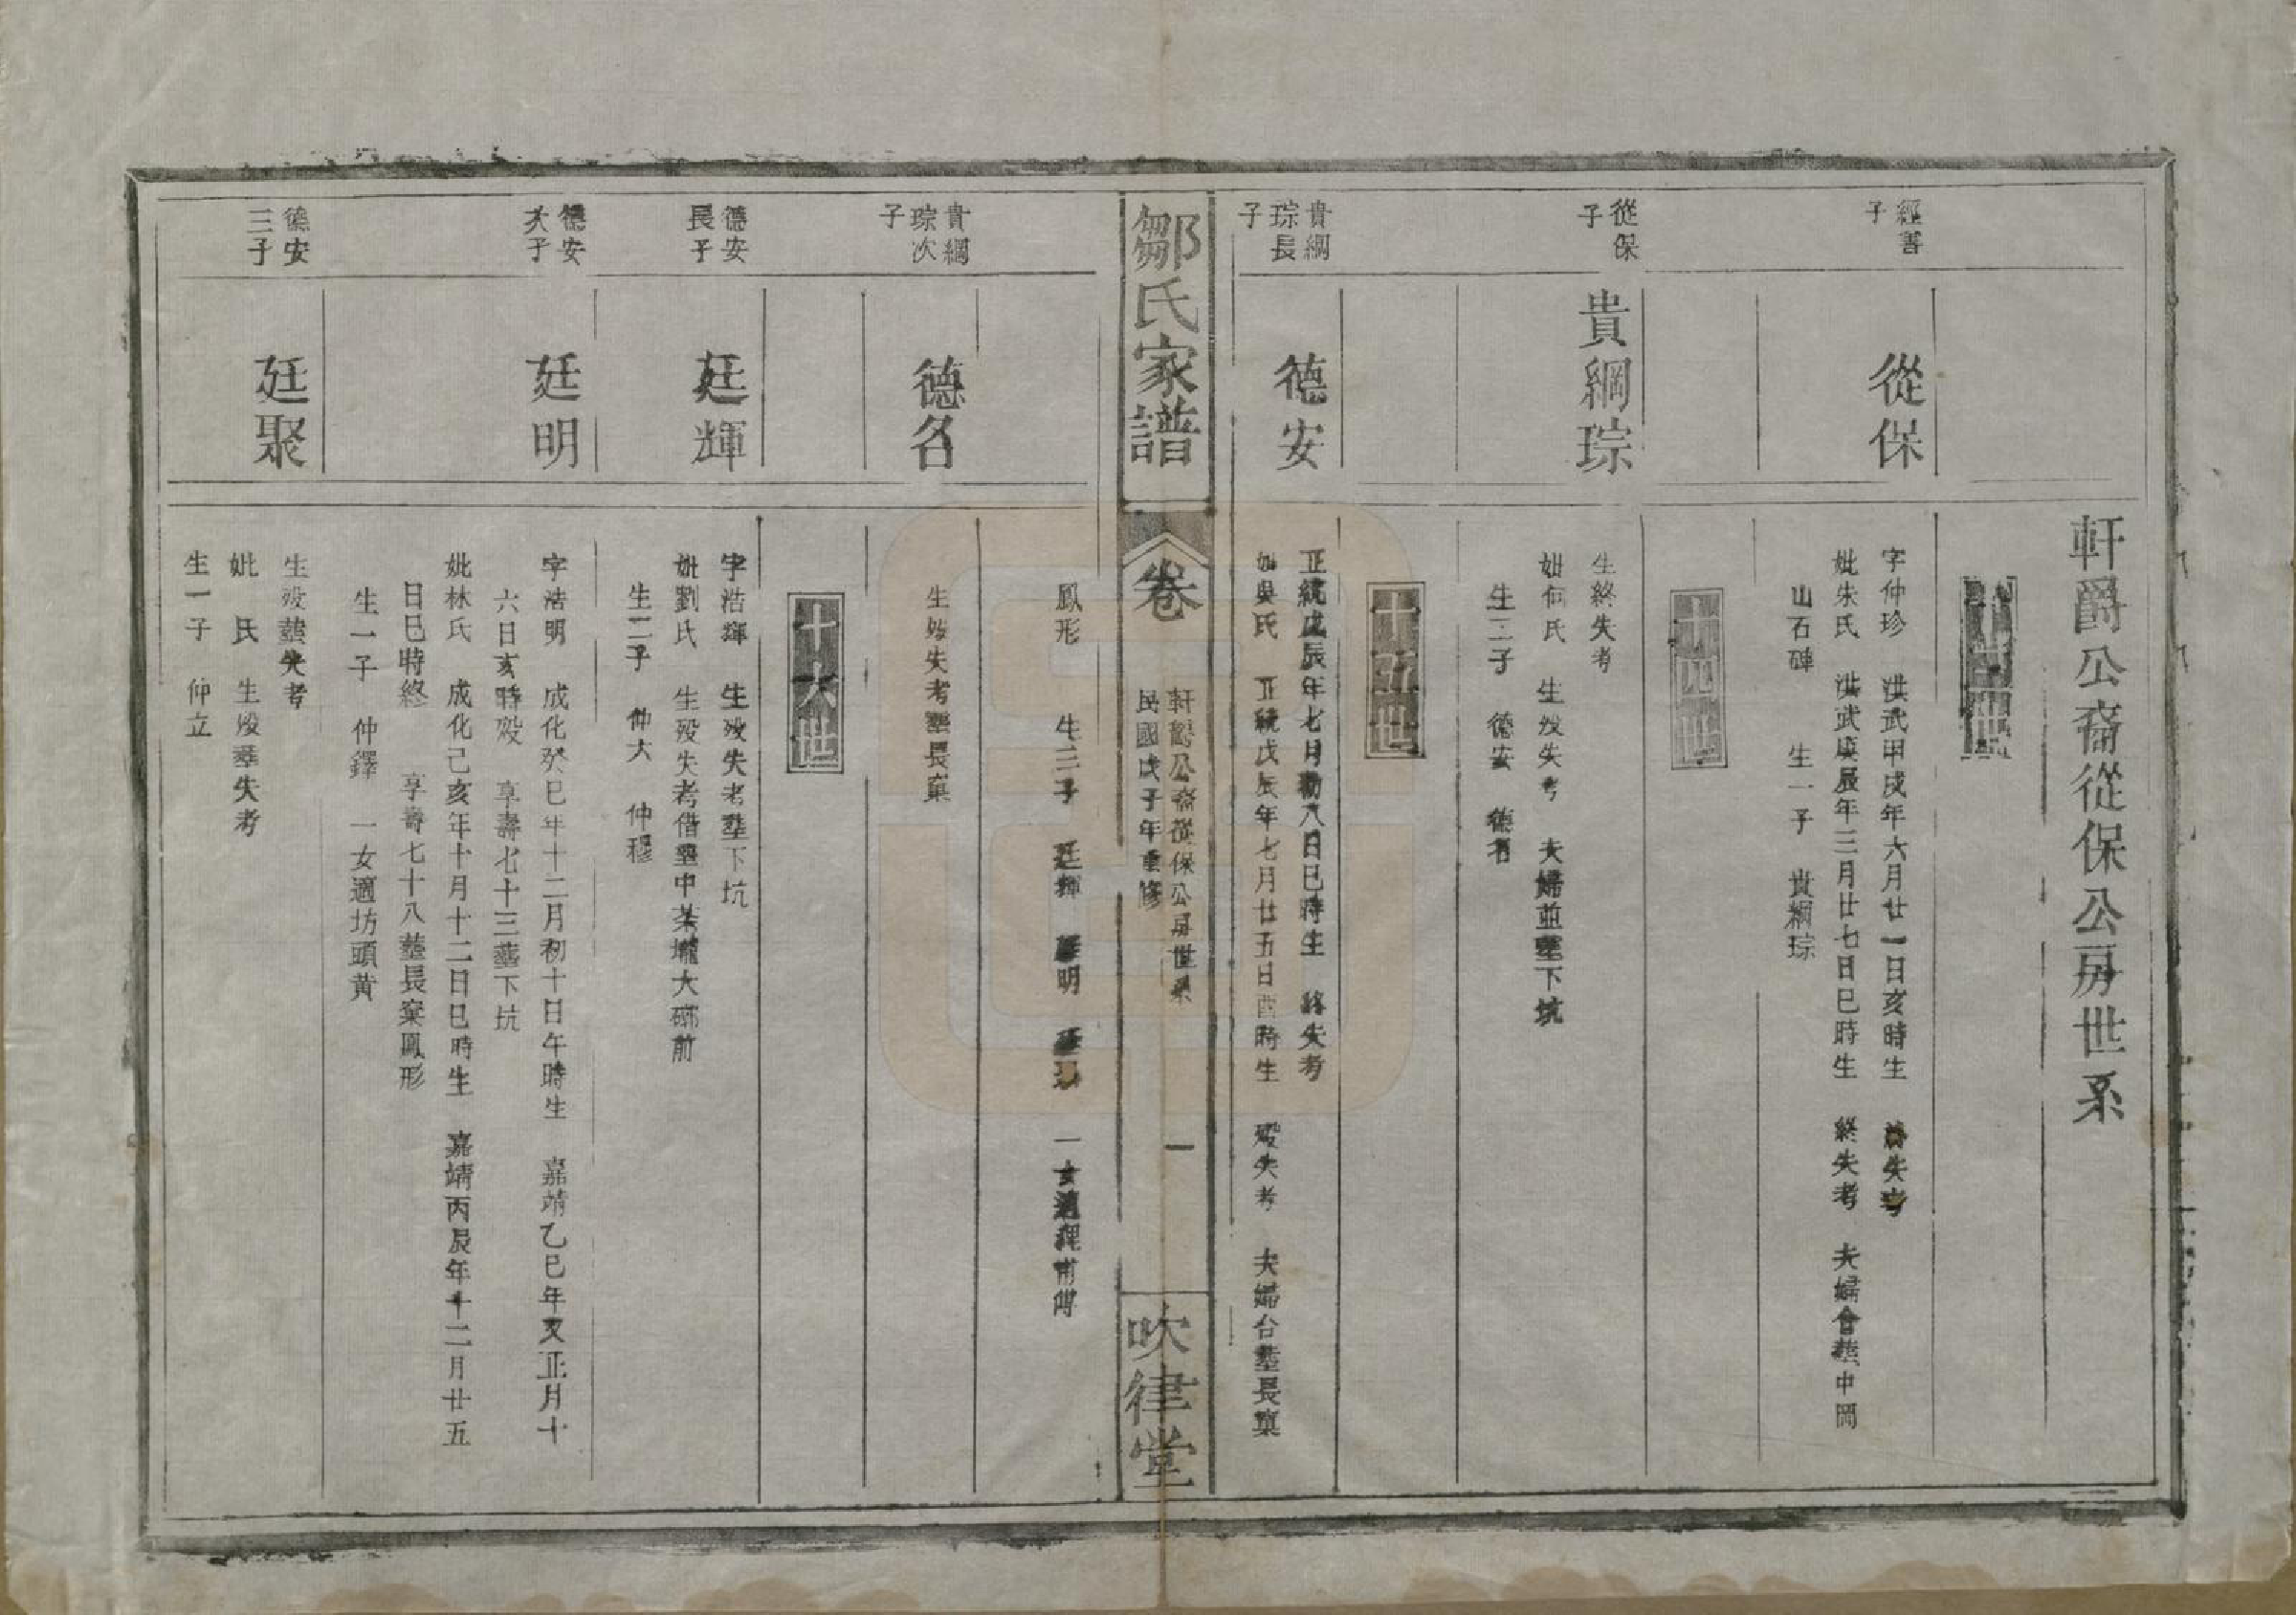 軒爵公裔從保公房世系
十三世
經善子
從保
字仲珍 洪武甲戌年六月廿一日亥時生 終失考
妣朱氏 洪武庚辰年三月廿七日巳時生 終失考 夫婦合塟中岡
山石碑 生一子 貴綱琮
十四世
從保子
貴綱琮
生終失考
妣何氏 生歿失考 夫婦並塟下坑
生二子 德安 德名
十五世
貴綱琮長子
德安
正統戊辰年七月初八日巳時生 終失考
妣吳氏 正統戊辰年七月廿五日酉時生 歿失考 夫婦合塟長窠
鄒氏家譜
卷
軒爵公裔從保公房世系
民國戊子年重修
一
吹律堂
鳳形 生三子 廷輝 廷明 廷聚 一女適裡甫傅
貴綱琮次子
德名
生歿失考塟長窠
十六世
德安長子
廷輝
字浩輝 生歿失考塟下坑
妣劉氏 生歿失考借塟中茶壠大磜前
生二子 仲大 仲穆
德安次子
廷明
字浩明 成化癸巳年十二月初十日午時生 嘉靖乙巳年又正月十
六日亥時歿 享壽七十三塟下坑
妣林氏 成化己亥年十月十二日巳時生 嘉靖丙辰年十二月廿五
日巳時終 享壽七十八塟長窠鳳形
生一子 仲鐸 一女適坊頭黃
德安三子
廷聚
生歿塟失考
妣 氏 生歿塟失考
生一子 仲立